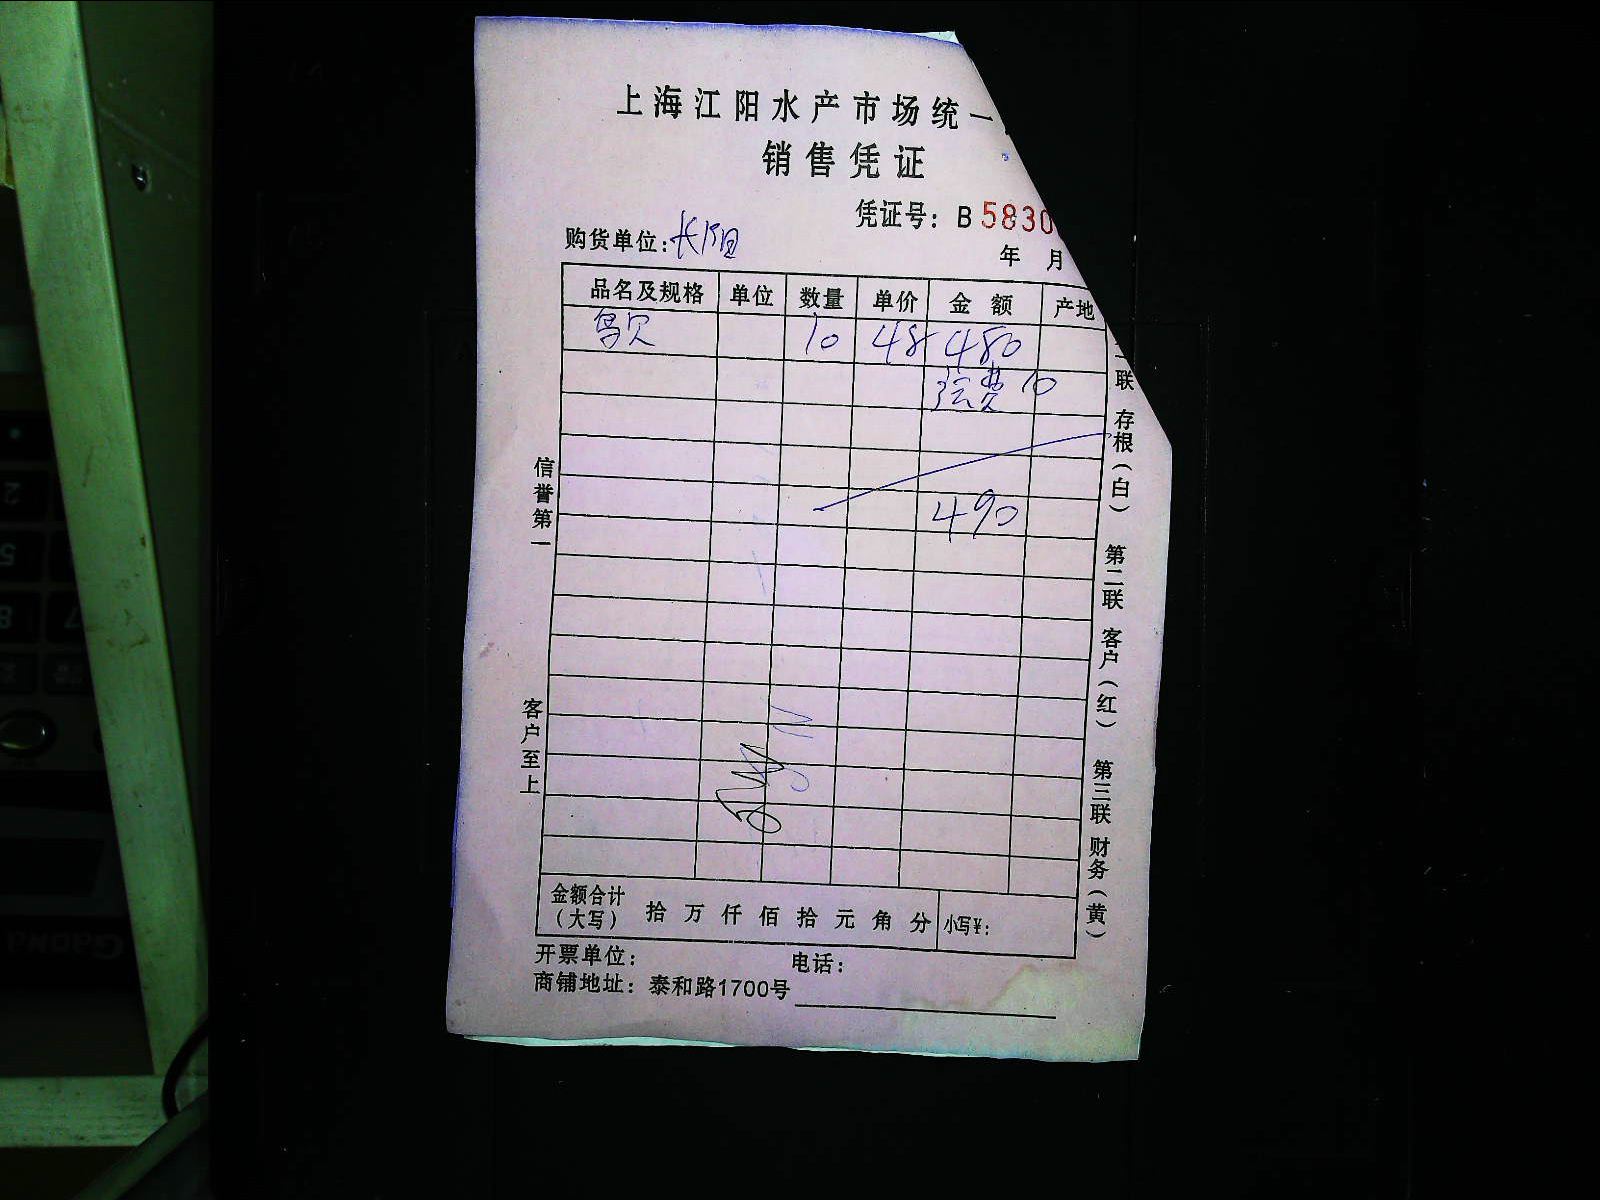 上海江阳水产市场统一
销售凭证
凭证号：B 5830
购货单位：长阳
年 月
品名及规格 单位 数量 单价 金额 产地
10 48 480
运费 10
490
信誉第一
客户至上
联 存根（白） 第二联 客户（红） 第三联 财务（黄）
金额合计（大写） 拾 万 仟 佰 拾 元 角 分 小写￥：
开票单位： 电话：
商铺地址：泰和路1700号
2
5
8
7